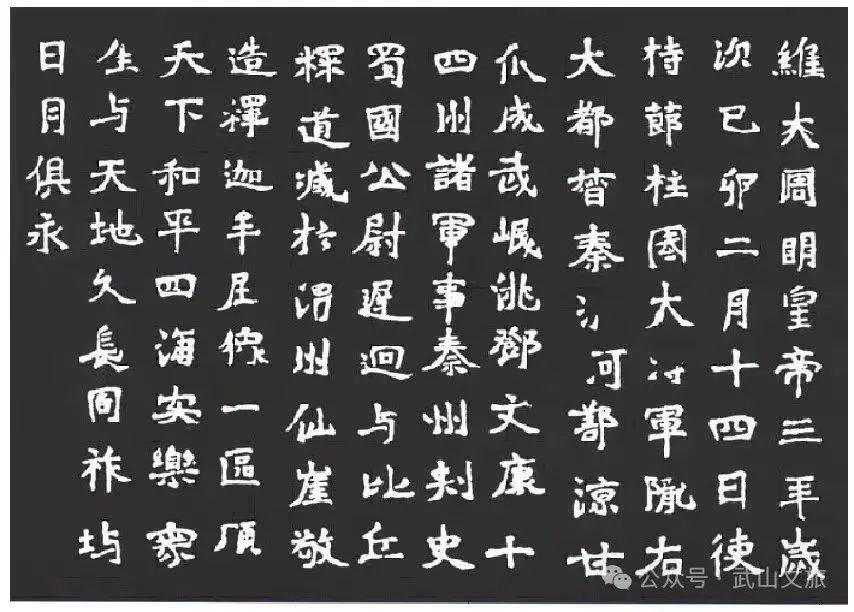 維大周明皇帝三年歲
次己卯二月十四日使
持節柱國大將軍隴右
大都督秦河鄯涼甘
瓜成武岷洮鄧文康十
四州諸軍事秦州刺史
蜀國公尉遲迥与比丘
釋道減於渭州仙崖敬
造釋迦牟尼像一區願
天下和平四海安樂衆
生与天地久長周祚与
日月俱永
公众号 · 武山文旅